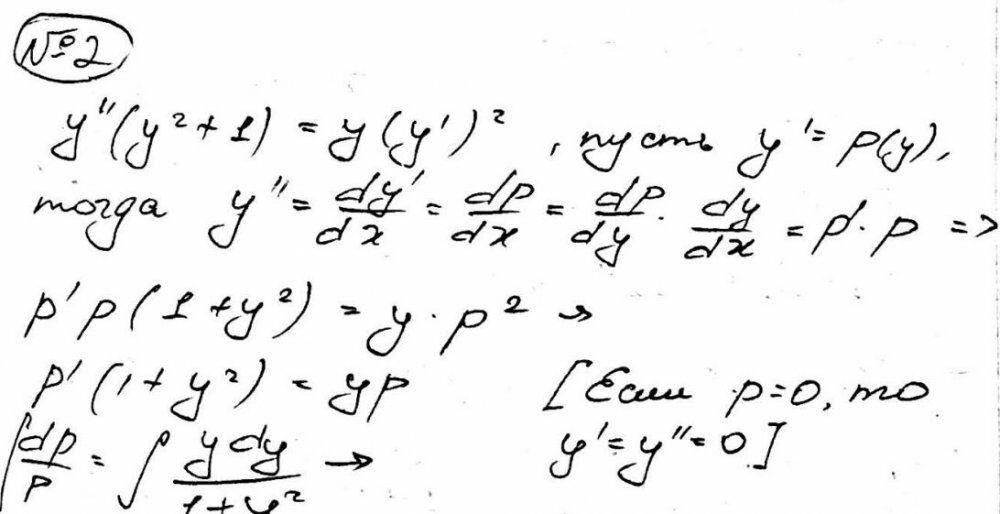 №2
y''(y²+1) = y(y')², пусть y' = p(y),
тогда y'' = dy'/dx = dp/dx = dp/dy · dy/dx = p'·p =>
p'p(1+y²) = y·p² →
p'(1+y²) = yp [Если p=0, то
∫dp/p = ∫ydy/1+y² → y'=y''=0]